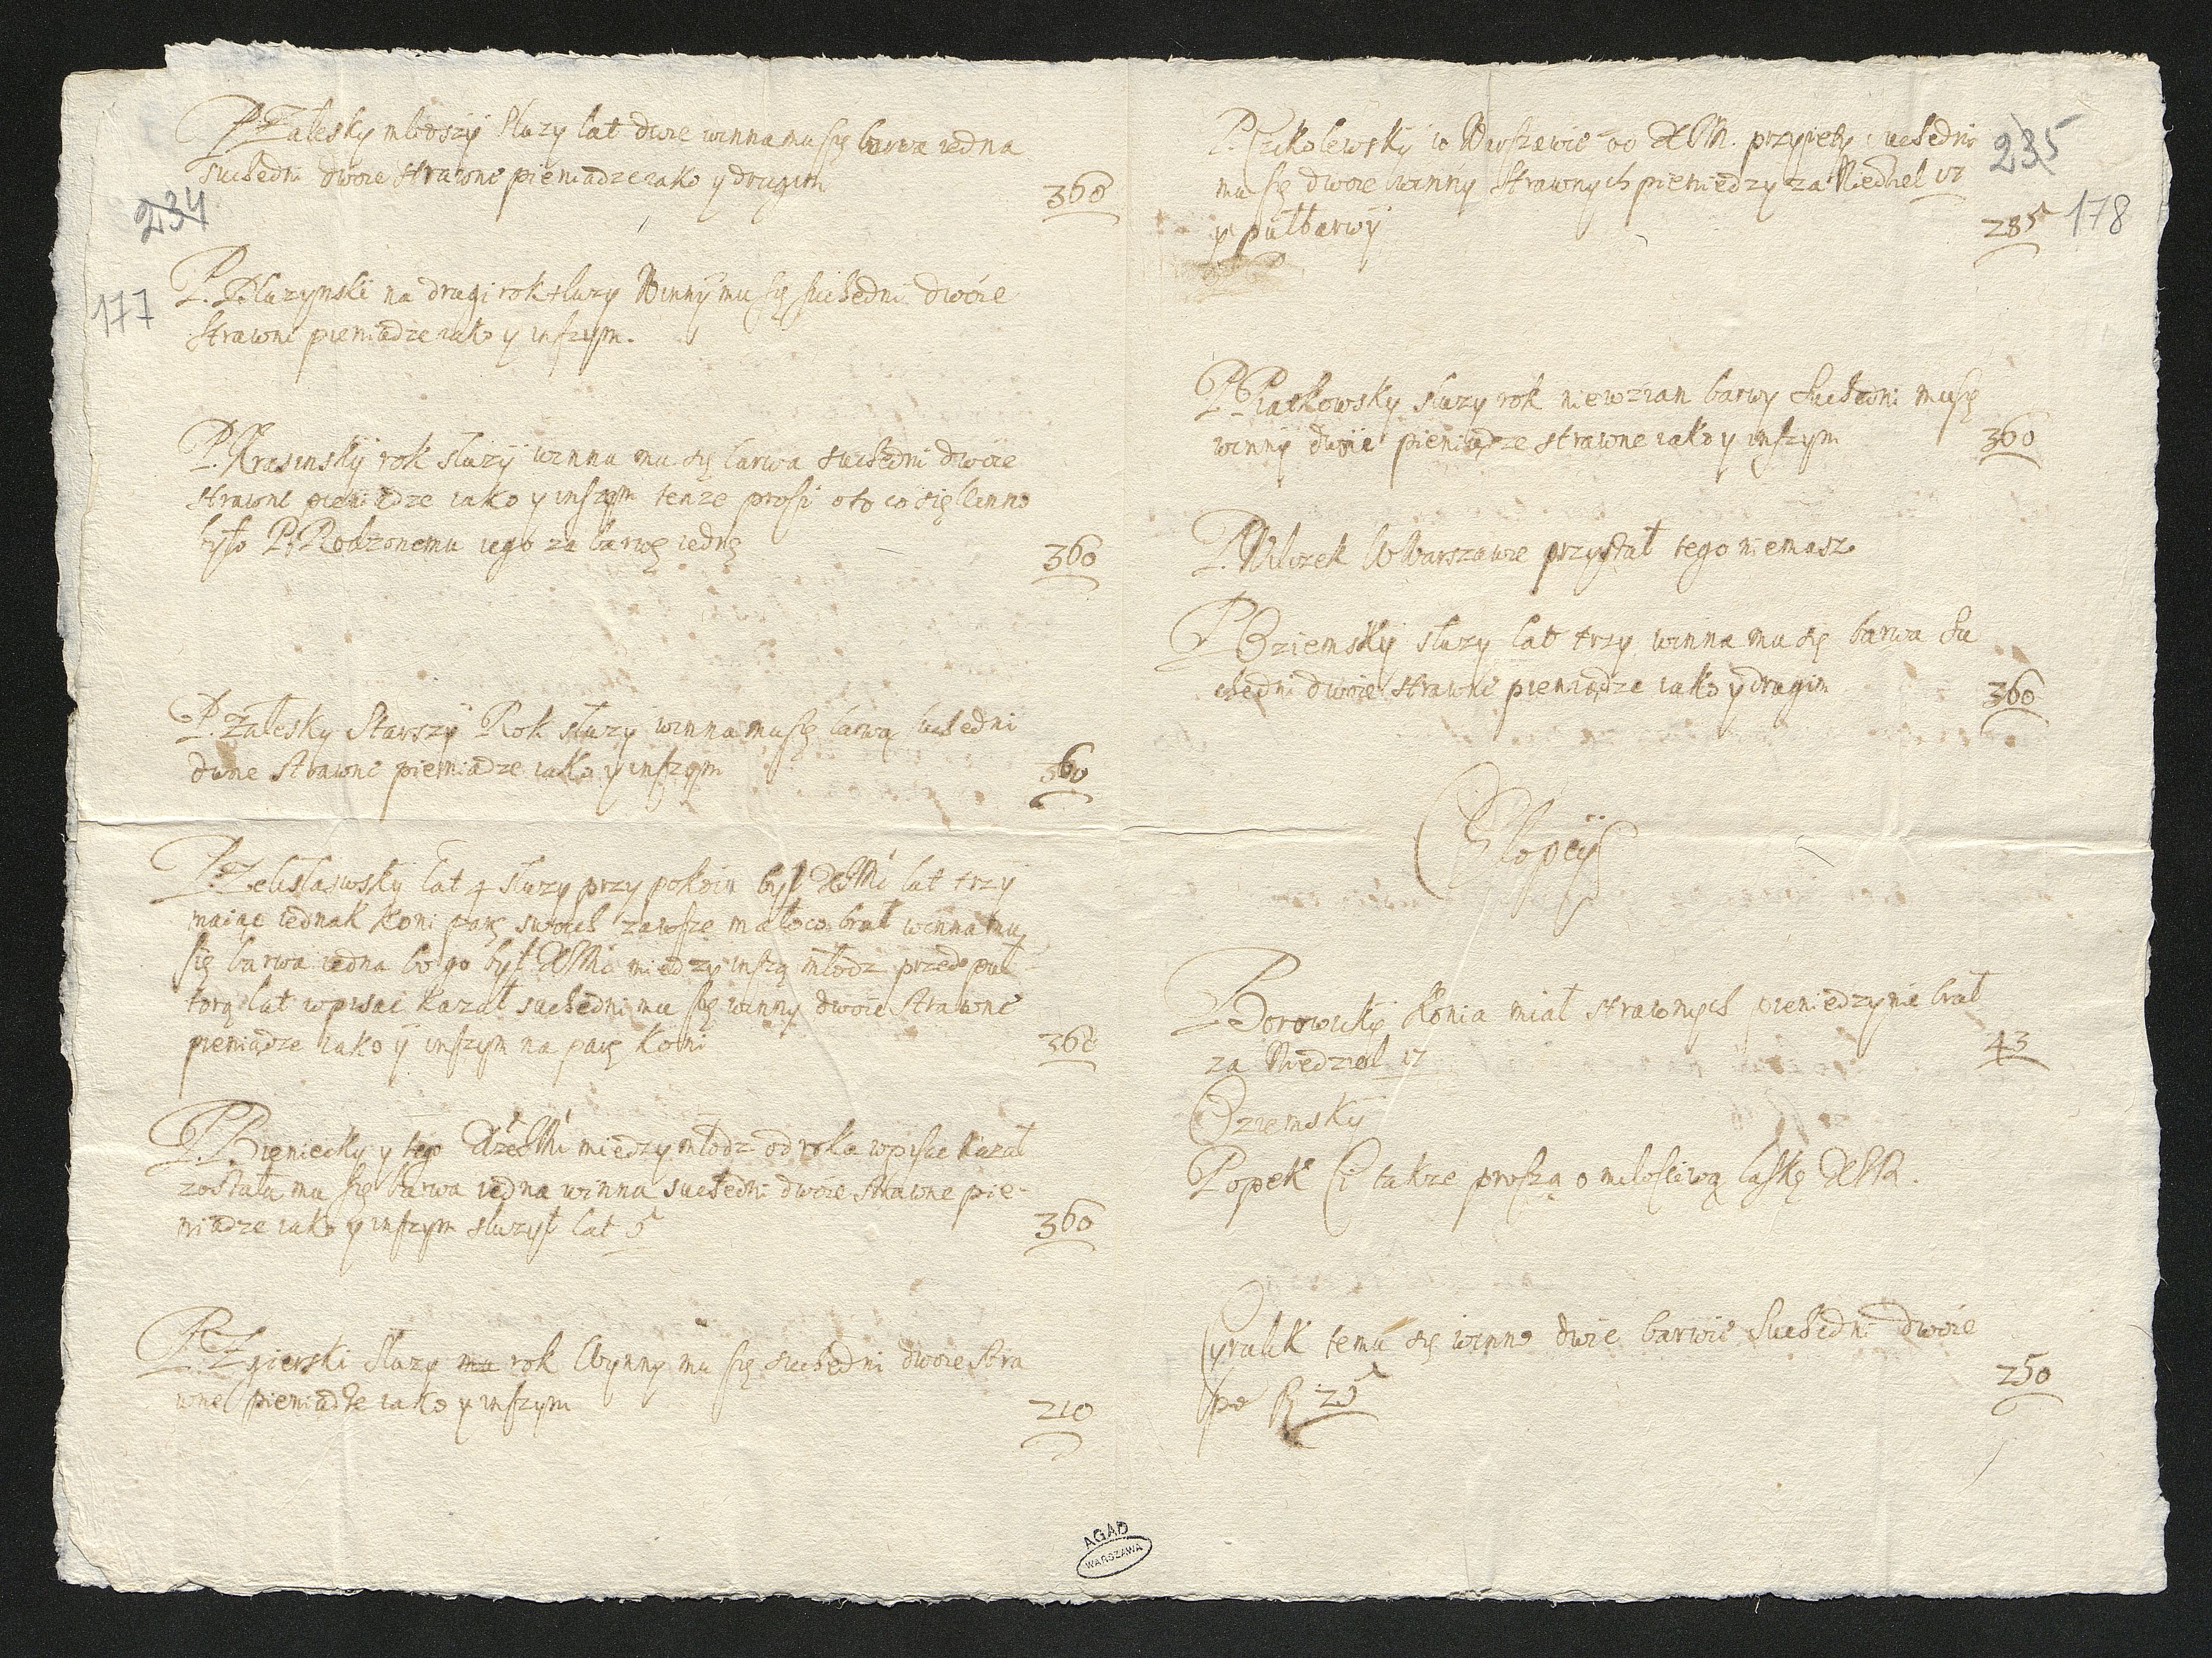 P. Zalesky młodszy służy lat dwie winna mu się barwa iedna
suchedni dwoie strawne pieniadze iako y drugim
360
234
177
P. Dluzynski na drugi rok służy Winny mu się suchedni dwoie
strawne pieniadze iako y inszym.
P. Krasinsky rok służy winna mu się barwa suchedni dwoie
strawne pieniadze iako y inszym tenze prosi o to co się Winno
było P. Rodzonemu iego za barwę iednę
360
P. Zalesky Starszy Rok służy winna mu się barwa suchedni
dwoie strawne pieniadze iako y inszym
360
P. Zelisławsky lat 4 służy przy pokoiu był lat trzy
maiąc iednak koni parę swoich zawsze mało co brał winna mu
się barwa iedna bo go był miedzy inszą młodz przed puł
torą lat wpisac kazał suchedni mu się winny dwoie strawne
pieniadze iako y inszym na parę koni
360
P. Bieniecky y tego miedzy młodz od roka wpisac kazał
została mu się barwa iedna winna suchedni dwoie strawne pie-
niadze iako y inszym służył lat 5
360
P. Zgierski służy ma rok Wynny mu się suchedni dwoie stra
wne pieniadze iako y inszym
210
P. Czekolewsky w Warszawie od przyięty suchedni
mu się dwoie winny strawnych pieniedzy za Niedziel 17
y pułbarwy
285
235
178
P. Piaskowsky służy rok niewział barwy suchedni mu się
winny dwoie pieniądze strawne iako y inszym
360
P. Wilczek W Warszawie przystał tego niemasz
P. Oziemsky służy lat trzy winna mu się barwa su
chedni dwoie strawne pieniądze iako y drugim
360
Chłopcy
P. Borowicky konia miał strawnych pieniedzy nie brał
za Niedziel 17
43
Oziemsky
Popek Ci takze proszą o miłosciwą łaskę
Cyrulik temu się winno dwie barwie Suchedni dwoie
po 25
250
AGAD
WARSZAWA